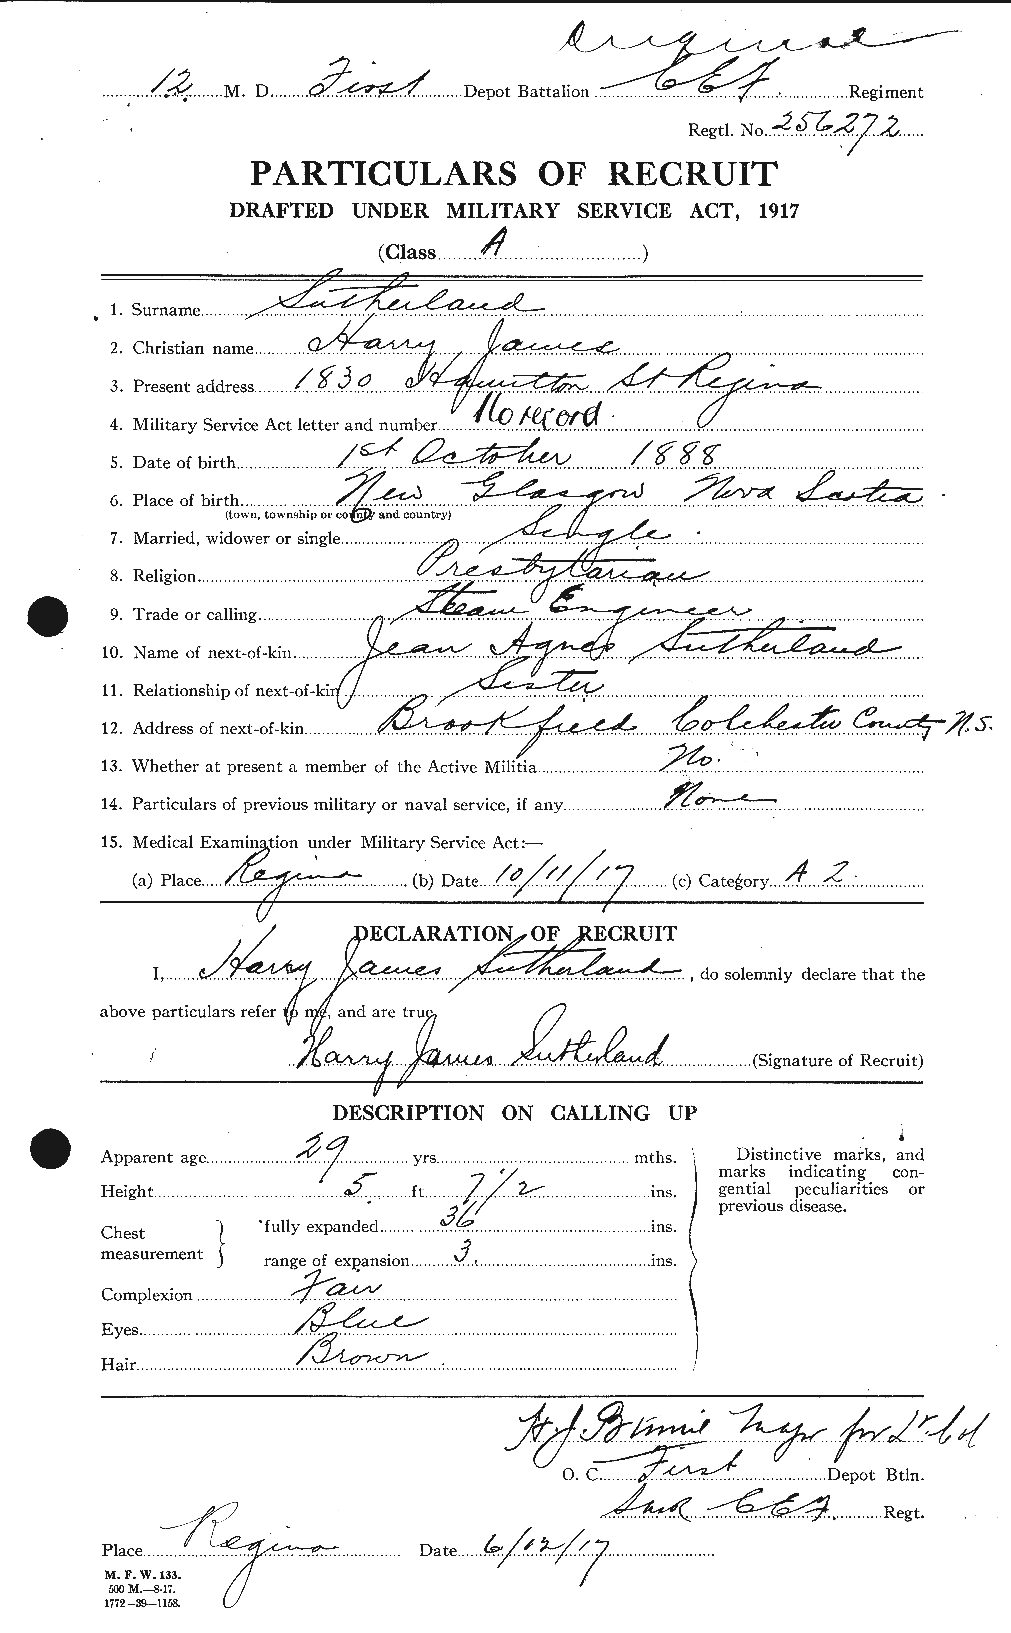 Original
12 M. D. First Depot Battalion CEF Regiment
Regtl. No. 256272
PARTICULARS OF RECRUIT
DRAFTED UNDER MILITARY SERVICE ACT, 1917
(Class A )
1. Surname Sutherland
2. Christian name Harry, James
3. Present address 1830 Hamilton St Regina
4. Military Service Act letter and number No record.
5. Date of birth 1st October 1888
6. Place of birth New Glasgow Nova Scotia
(town, township or county and country)
7. Married, widower or single Single
8. Religion Presbytarian
9. Trade or calling Steam Engineer
10. Name of next-of-kin Jean Agnes Sutherland
11. Relationship of next-of-kin Sister
12. Address of next-of-kin Brookfield Colchester County N.S.
13. Whether at present a member of the Active Militia No.
14. Particulars of previous military or naval service, if any None
15. Medical Examination under Military Service Act:—
(a) Place Regina (b) Date 10/11/17 (c) Category A 2.
DECLARATION OF RECRUIT
I, Harry James Sutherland, do solemnly declare that the
above particulars refer to me, and are true.
Harry James Sutherland (Signature of Recruit)
DESCRIPTION ON CALLING UP
Apparent age 29 yrs. mths.
Height 5 ft 7 1/2 ins.
Chest measurement fully expanded 36 ins.
range of expansion 3. ins.
Complexion Fair
Eyes Blue
Hair Brown
Distinctive marks, and
marks indicating con-
gential peculiarities or
previous disease.
H.J. Major for Lt. Col
O. C. First Depot Btln.
Sask CEF. Regt.
Place Regina Date 6/12/17
M. F. W. 133.
500 M.—8-17.
1772—39—1158.